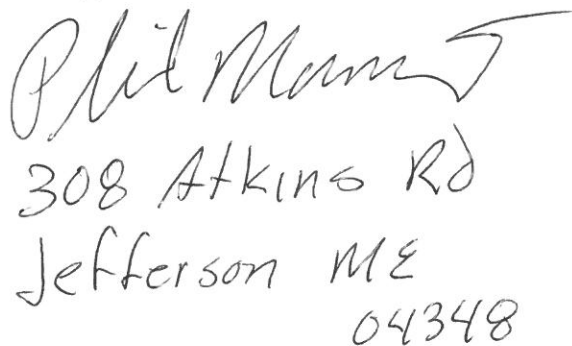 Phil
308 Atkins Rd
Jefferson ME
04348